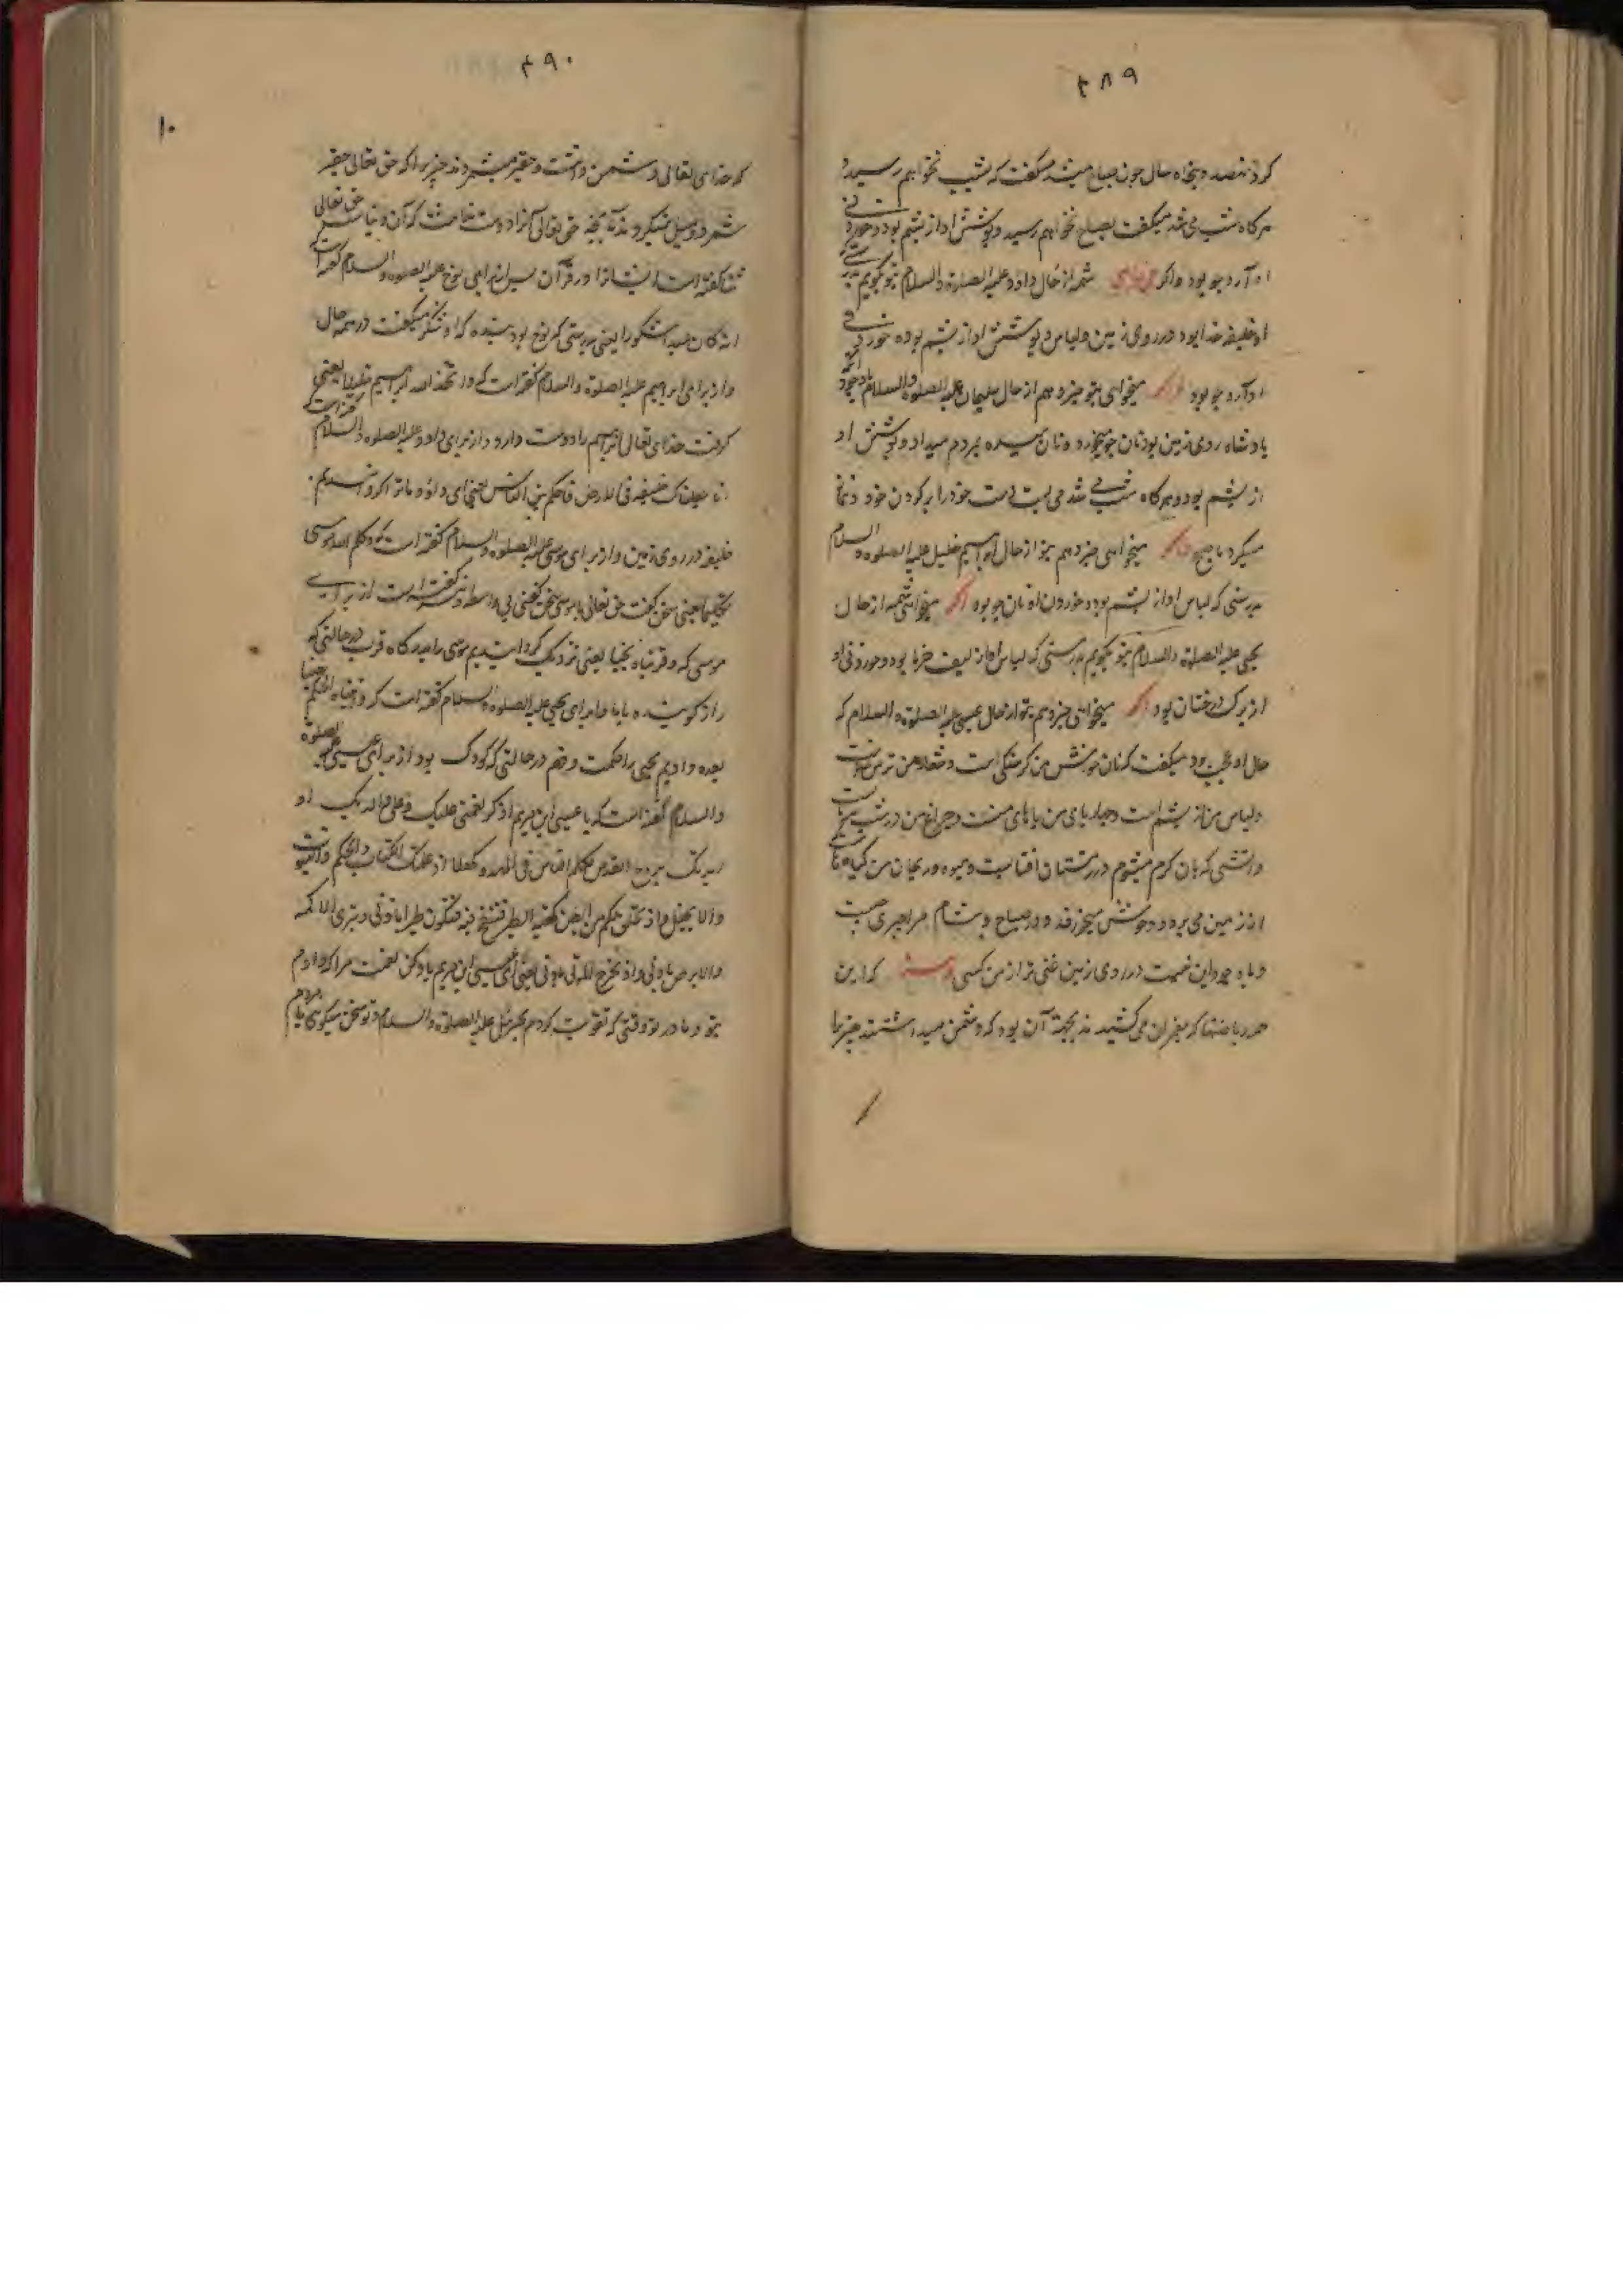 ۴۸۹
کرد نهصد و پنجاه سال چون صباح میشد میگفت که بشب نخواهم رسید و
هرگاه شب می شد میگفت بصباح نخواهم رسید و پوشش او از پشم بود و خوردنی
او آرد جو بود و اگر خواهی شمه از حال داود علیه الصلوة والسلام بتو بگویم بدرستی که
او خلیفه خدا بود در روی زمین و لباس و پوشش او از پشم بوده خوردنی
او آرد جو بود و اگر میخواهی بتو خبر دهم از حال سلیمان علیه الصلوة والسلام با وجود آنکه
پادشاه روی زمین بود نان جو میخورد و نان میده بمردم میداد و پوشش او
از پشم بود و هرگاه شب می شد می بست دست خود را بر گردن خود و نماز
میکرد تا صبح و اگر میخواهی خبر دهم بتو از حال ابراهیم خلیل علیه الصلوة والسلام
بدرستی که لباس او از پشم بود و خوردن او نان جو بود اگر میخواهی شمه از حال
یحیی علیه الصلوة والسلام بتو بگویم بدرستی که لباس او از لیف خرما بود و خوردنی او
از برک درختان بود اگر میخواهی خبر دهم بتو از حال عیسی علیه الصلوة والسلام که
حال او عجیب بود میگفت که نان خورش من گرسنگی است و شعار من ترس
و لباس من از پشم است و چهارپای من پاهای منست و چراغ من در شب
و آتشی که بآن گرم میشوم در زمستان آفتابست و میوه و ریحان من گیاه
از زمین می برود و وحوش میخورند و در صباح و شام مرا چیزی نیست
و با وجود این نیست در روی زمین غنی تر از من کسی که این
همه ریاضتها که پیغمبران می کشیدند بجهة آن بود که دشمن میداشتند چیزیرا
۴۹۰
۱۰
که خدای تعالی دشمن داشت و حقیر میشمردند چیزیرا که حق تعالی حقیر
شمرد و میل نمیکردند بآن بجهة حق تعالی آنرا دوست نداشت که آن دنیاست حق تعالی
ثنا گفته است ایشانرا در قرآن پس از برای نوح علیه الصلوة والسلام گفته است
انه کان عبدا شکورا یعنی بدرستی که نوح بود بنده که او شکر میگفت در همه حال
و از برای ابراهیم علیه الصلوة والسلام گفته است که واتخذ الله ابراهیم خلیلا یعنی
گرفت خدای تعالی ابراهیم را دوست دارد و از برای داود علیه الصلوة والسلام گفته است که
انا جعلناک خلیفة فی الارض فاحکم بین الناس یعنی ای داود ما ترا گردانیدیم
خلیفه در روی زمین و از برای موسی علیه الصلوة والسلام گفته است که وکلم الله موسی
تکلیما یعنی سخن گفت حق تعالی با موسی سخن گفتنی بی واسطه و گفته است از برای
موسی که وقربناه نجیا یعنی نزدیک گردانیدیم موسی را بدرگاه قرب در حالتی که
راز گوینده با ما و از برای یحیی علیه الصلوة والسلام گفته است که وآتیناه الحکم صبیا
یعنی دادیم یحیی را حکمت و فهم در حالتی که کودک بود از برای عیسی علیه الصلوة
والسلام گفته است که یا عیسی ابن مریم اذکر نعمتی علیک وعلی والدتک اذ
ایدتک بروح القدس تکلم الناس فی المهد وکهلا اذ علمتک الکتاب والحکمة والتوریة
والانجیل واذ تخلق من الطین کهیئة الطیر فتنفخ فیه فتکون طیرا باذنی وتبرئ الاکمه
والابرص باذنی واذ تخرج الموتی باذنی یعنی ای عیسی ابن مریم یاد کن نعمت مرا که دادم
بتو و مادر تو وقتی که تقویت کردم بجبرئیل علیه الصلوة والسلام و تو سخن میگوئی با مردم